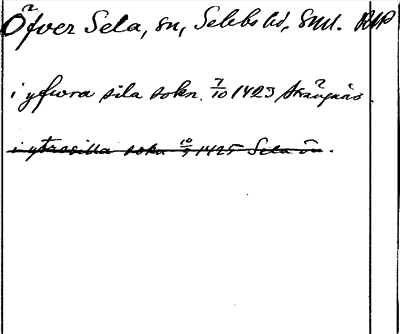 Öfver Sela, sn, Selebo hd, Sml. RAP
i yfwra sila sokn. 7/10 1423 Strängnäs.
i ytrasilla sokn 10/9 1425 Sela ön.